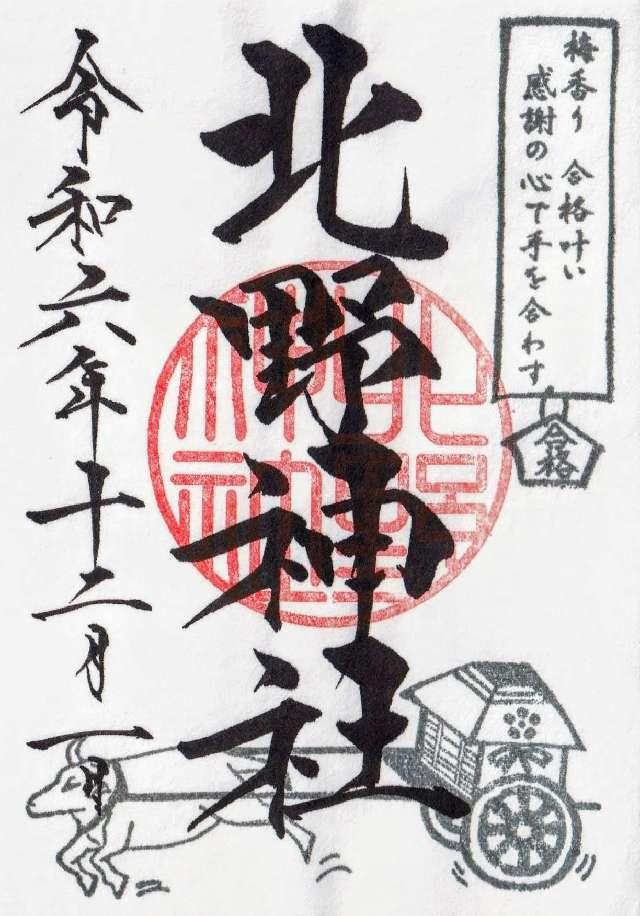 梅香り 合格叶い
感謝の心で手を合わす
合格
北野神社
令和六年十二月一日